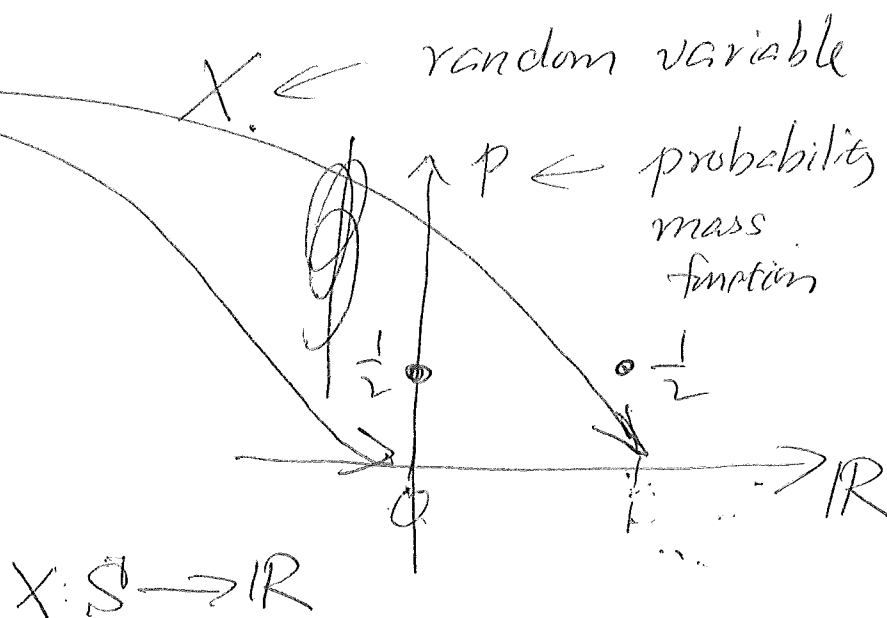 X ← random variable
p ← probability
mass
function
1/2 1/2
0 1 ℝ
X: S → ℝ